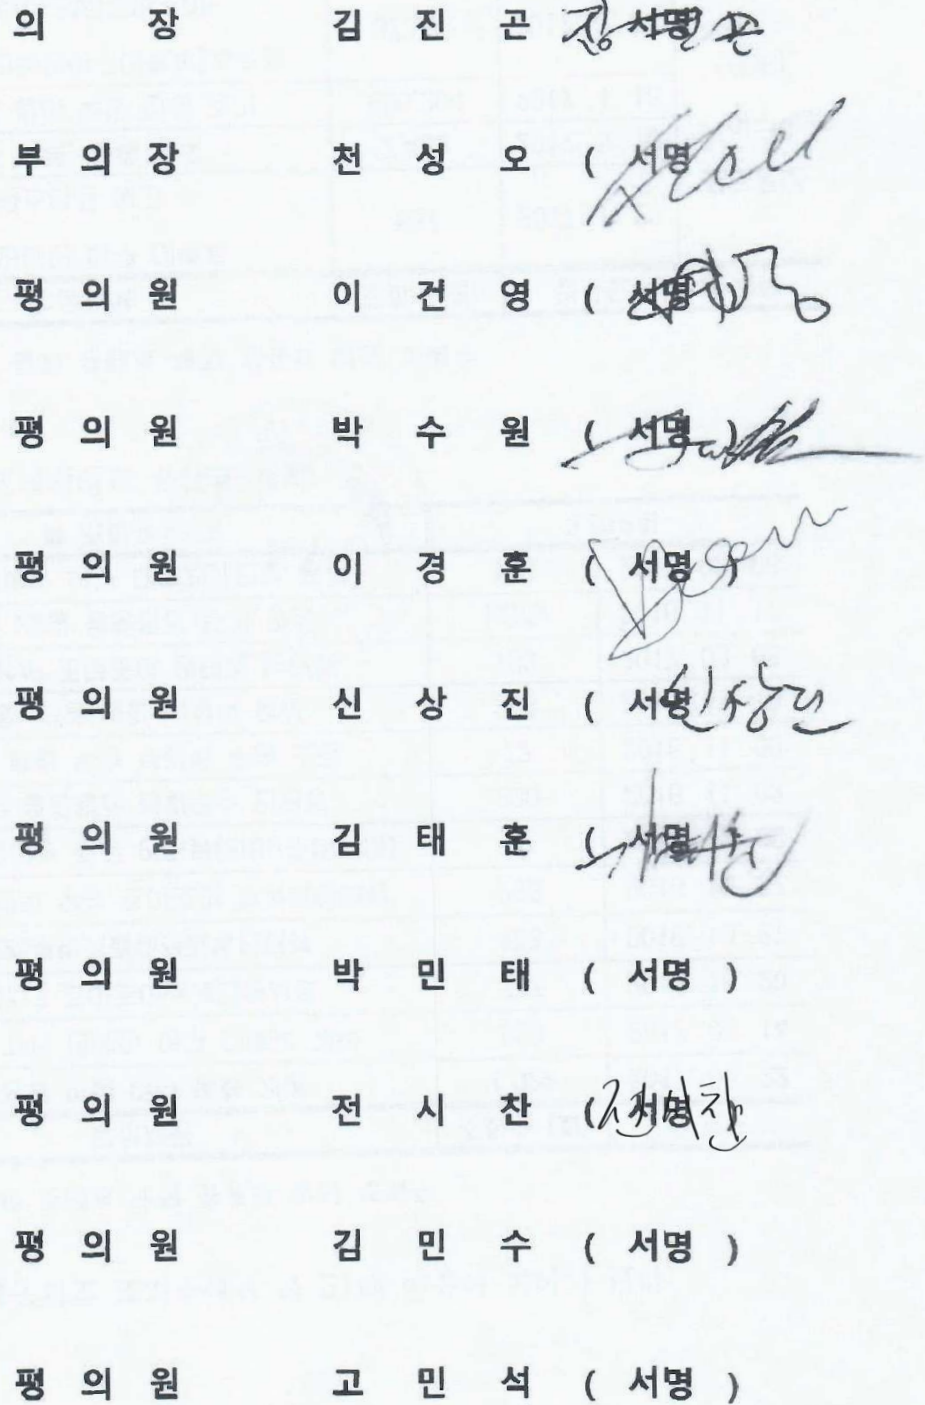 의 장 김 진 곤 서명
부 의 장 천 성 오 ( 서명 )
평 의 원 이 건 영 ( 서명
평 의 원 박 수 원 ( 서명 )
평 의 원 이 경 훈 ( 서명 )
평 의 원 신 상 진 ( 서명 신상진
평 의 원 김 태 훈 ( 서명 )
평 의 원 박 민 태 ( 서명 )
평 의 원 전 시 찬 ( 서명 전시찬
평 의 원 김 민 수 ( 서명 )
평 의 원 고 민 석 ( 서명 )